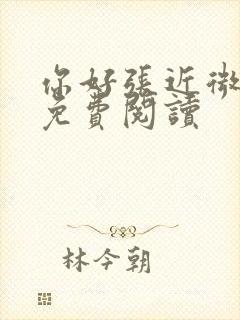 你好張近微
免費閱讀
林今朝